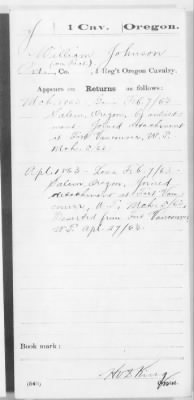 J 1 Cav. Oregon.
William Johnson
Co. , 1 Reg't Oregon Cavalry.
Appears on Returns as follows:
Mch. 1863. Feb 7/63
Salem, Oregon, by
Joined detachment
at Fort Vancouver, W.T.
Mch.
Apl. 1863 - Feb 7/63 -
Salem Oregon, joined
detachment at Fort Van
couver, W.T. Mch.
Deserted from Fort Vancouver
W.T. Apl 27/63.
Book mark:
(546)
Copyist.